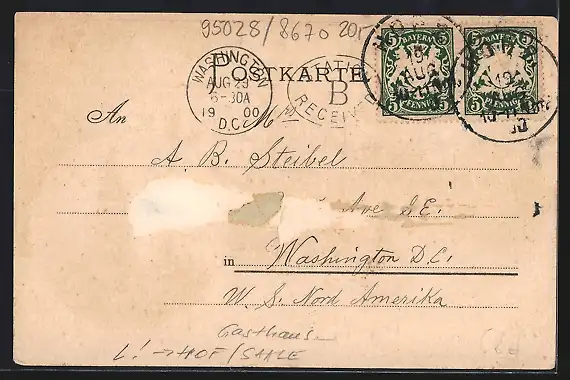 95028/8670 20,-
POSTKARTE
WASHINGTON
AUG 29
6-30A
1900
D.C.
STATION
B
RECEIVED
BAYERN
5 5
5 PFENNIG 5
BAYERN
5 5
5 PFENNIG 5
19
AUG
An Mr
A. B. Steibel
Ave S.E.
in Washington D.C.
W. S. Nord Amerika
Gasthaus
L! → HOF/SAALE